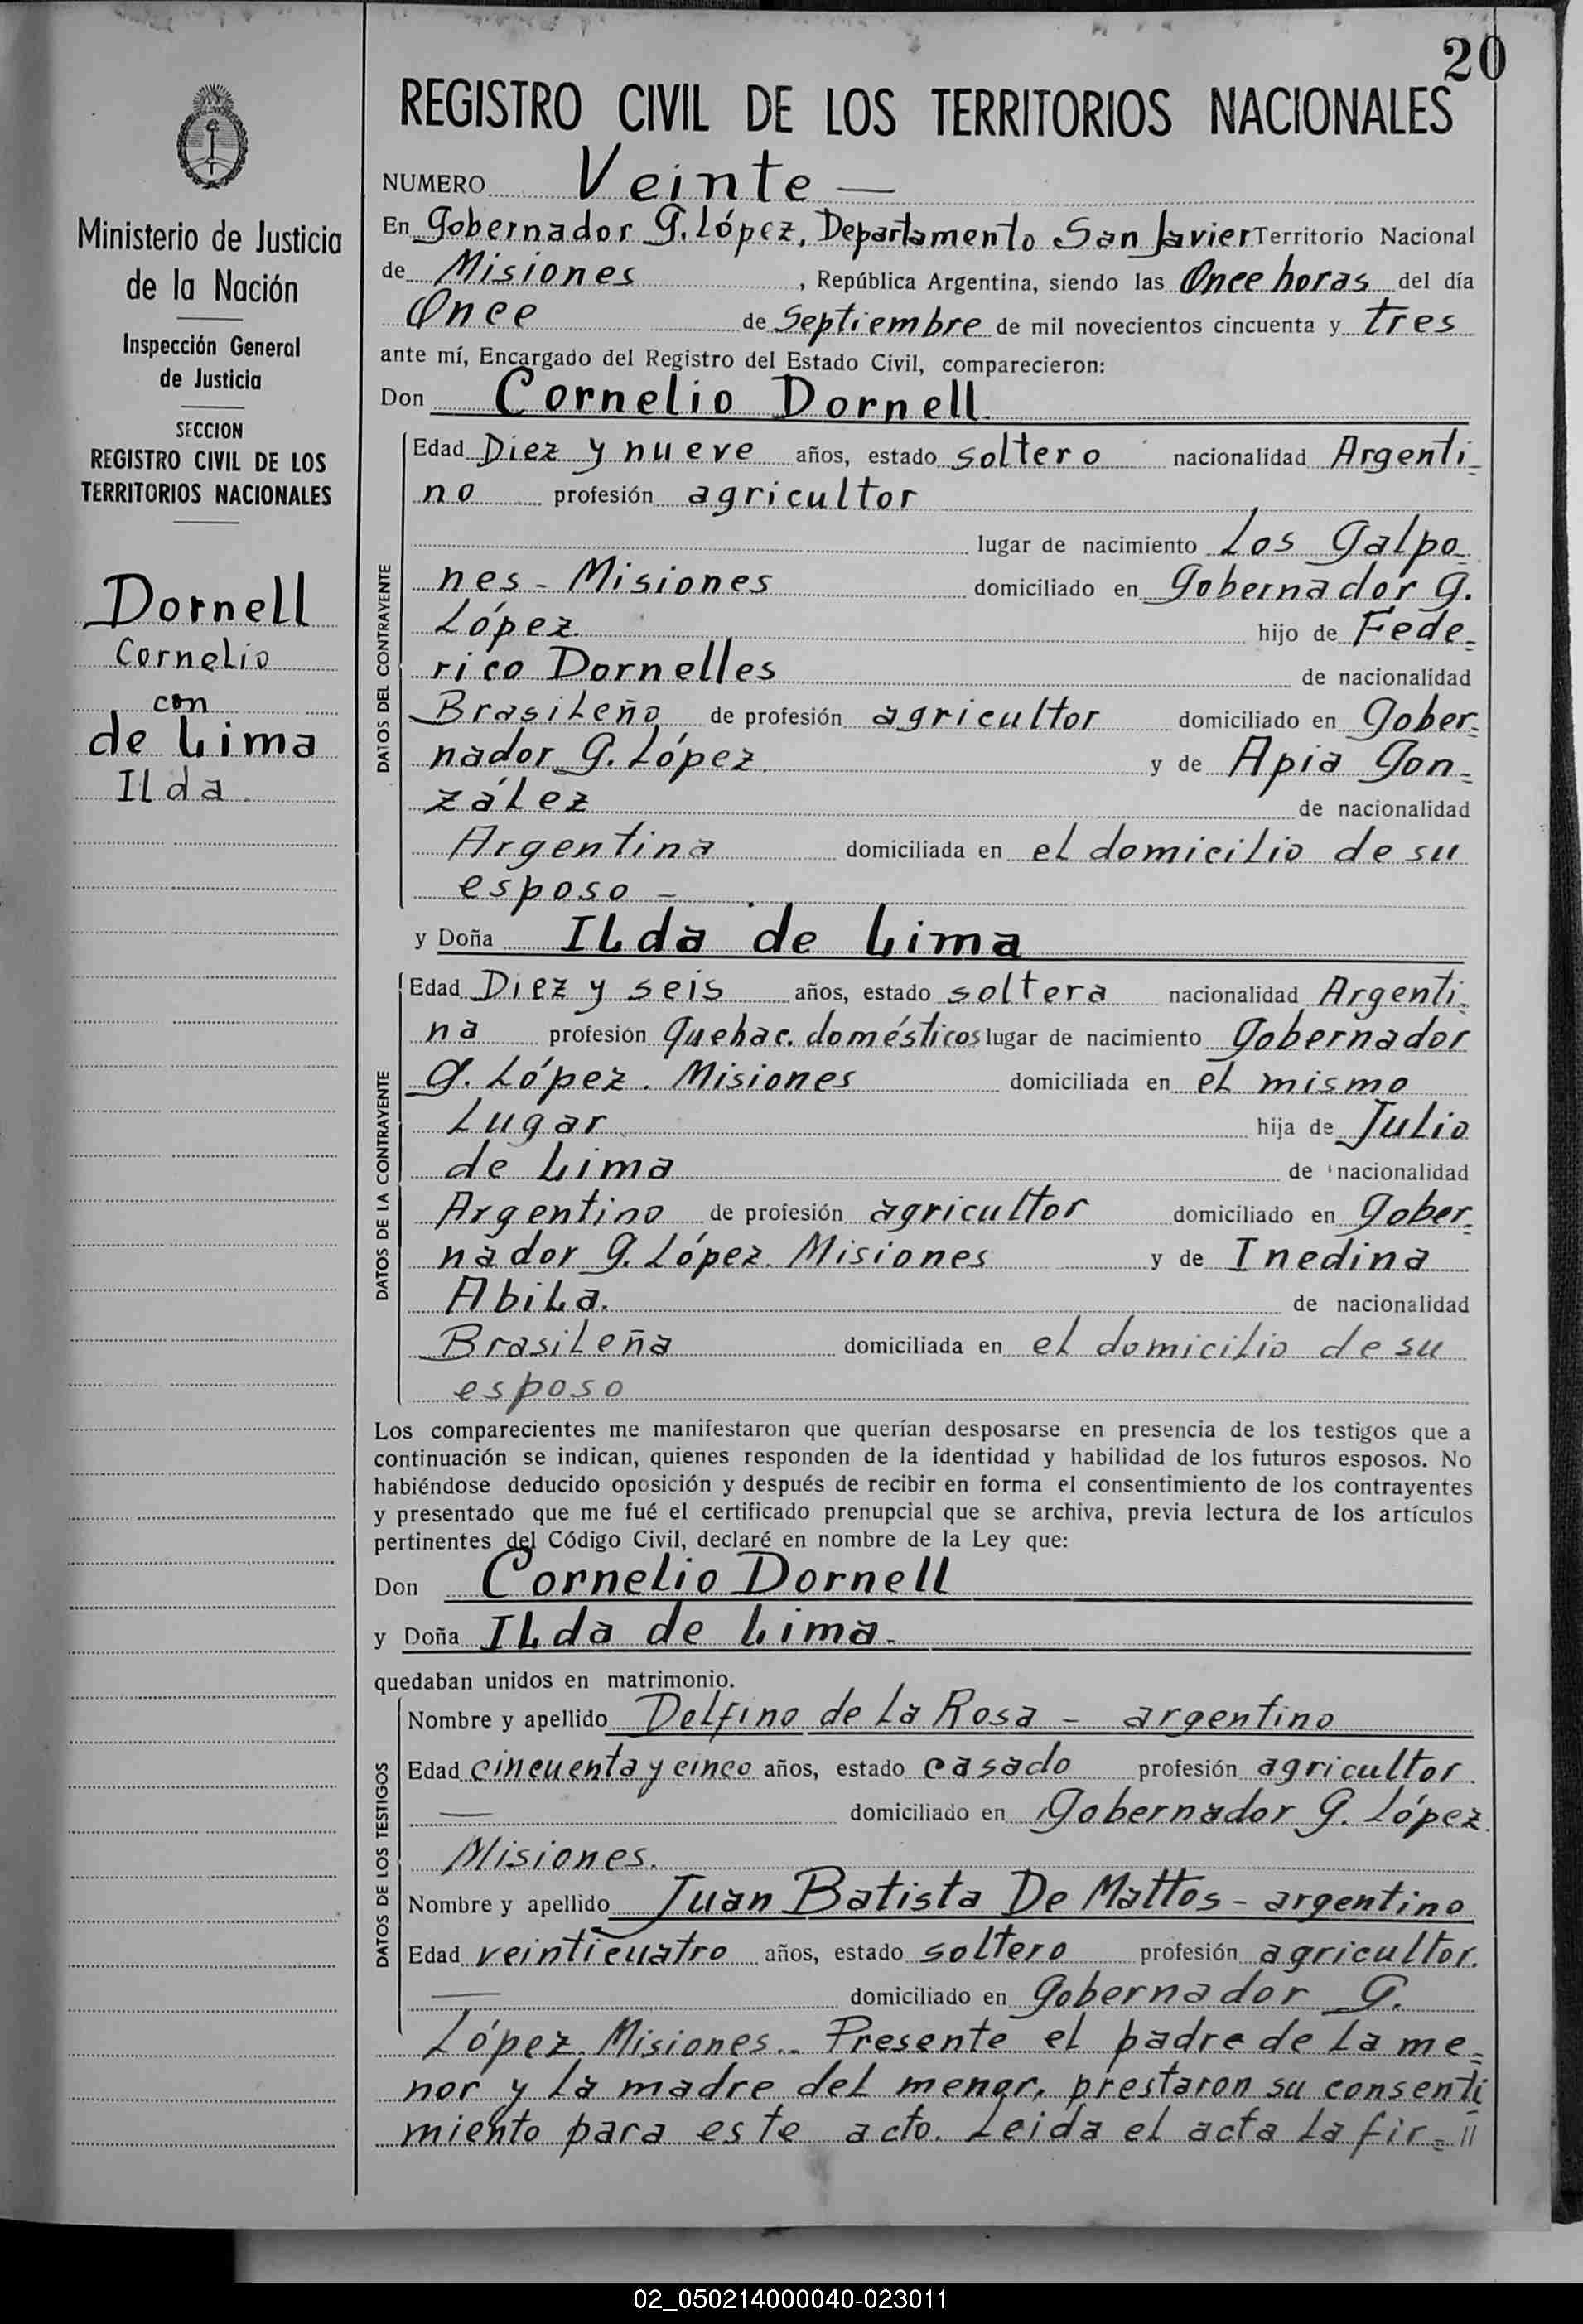 20
REGISTRO CIVIL DE LOS TERRITORIOS NACIONALES
Ministerio de Justicia
de la Nación
Inspección General
de Justicia
SECCION
REGISTRO CIVIL DE LOS
TERRITORIOS NACIONALES
Dornell
Cornelio
con
de Lima
Ilda
NUMERO Veinte —
En Gobernador G. López, Departamento San Javier Territorio Nacional
de Misiones, República Argentina, siendo las Once horas del día
Once de Septiembre de mil novecientos cincuenta y tres
ante mí, Encargado del Registro del Estado Civil, comparecieron:
Don Cornelio Dornell
DATOS DEL CONTRAYENTE
Edad Diez y nueve años, estado soltero nacionalidad Argenti-
no profesión agricultor
lugar de nacimiento Los Galpo-
nes - Misiones domiciliado en Gobernador G.
López. hijo de Fede-
rico Dornelles de nacionalidad
Brasileño de profesión agricultor domiciliado en Gober-
nador G. López. y de Apia Gon-
zález de nacionalidad
Argentina domiciliada en el domicilio de su
esposo -
y Doña Ilda de Lima
DATOS DE LA CONTRAYENTE
Edad Diez y seis años, estado soltera nacionalidad Argenti-
na profesión Quehac. domésticos lugar de nacimiento Gobernador
G. López. Misiones domiciliada en el mismo
Lugar hija de Julio
de Lima de nacionalidad
Argentino de profesión agricultor domiciliado en Gober-
nador G. López. Misiones y de Inedina
Abila. de nacionalidad
Brasileña domiciliada en el domicilio de su
esposo
Los comparecientes me manifestaron que querían desposarse en presencia de los testigos que a
continuación se indican, quienes responden de la identidad y habilidad de los futuros esposos. No
habiéndose deducido oposición y después de recibir en forma el consentimiento de los contrayentes
y presentado que me fué el certificado prenupcial que se archiva, previa lectura de los artículos
pertinentes del Código Civil, declaré en nombre de la Ley que:
Don Cornelio Dornell
y Doña Ilda de Lima.
quedaban unidos en matrimonio.
DATOS DE LOS TESTIGOS
Nombre y apellido Delfino de la Rosa - argentino
Edad cincuenta y cinco años, estado casado profesión agricultor.
— domiciliado en Gobernador G. López.
Misiones.
Nombre y apellido Juan Batista De Mattos - argentino
Edad veinticuatro años, estado soltero profesión agricultor.
— domiciliado en Gobernador G.
López. Misiones.- Presente el padre de la me-
nor y la madre del menor, prestaron su consenti
miento para este acto. Leida el acta la fir- //
02_050214000040-023011